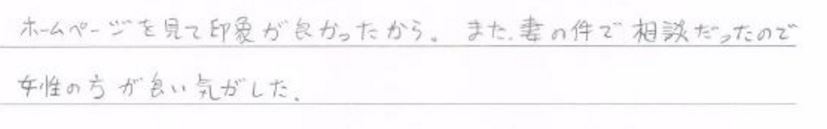 ホームページを見て印象が良かったから。また、妻の件で相談だったので
女性の方が良い気がした。